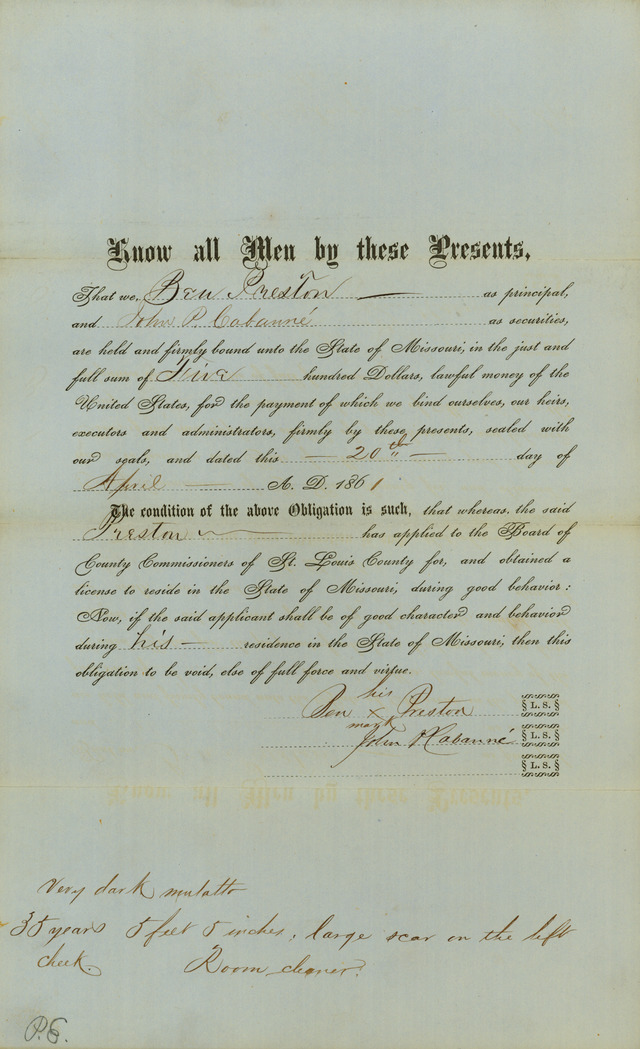 Know all Men by these Presents,
That we, Ben Preston as principal,
and John P. Cabanné as securities,
are held and firmly bound unto the State of Missouri, in the just and
full sum of Five hundred Dollars, lawful money of the
United States, for the payment of which we bind ourselves, our heirs,
executors and administrators, firmly by these presents, sealed with
our seals, and dated this — 20th — day of
April — A. D. 1861
The condition of the above Obligation is such, that whereas, the said
Preston has applied to the Board of
County Commissioners of St. Louis County for, and obtained a
license to reside in the State of Missouri, during good behavior:
Now, if the said applicant shall be of good character and behavior
during his — residence in the State of Missouri, then this
obligation to be void, else of full force and virtue.
his
Ben x Preston L. S.
mark
John P Cabanné L. S.
L. S.
Very dark mulatto
35 years 5 feet 5 inches, large scar on the left
cheek. Room cleaner.